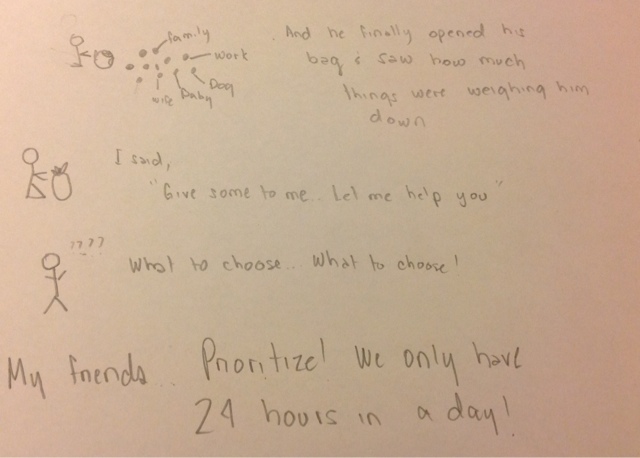 family
work
Dog
baby
wife
And he finally opened his
bag & saw how much
things were weighing him
down
I said,
"Give some to me.. Let me help you"
????
What to choose... What to choose!
My friends.. Prioritize! We only have
24 hours in a day!